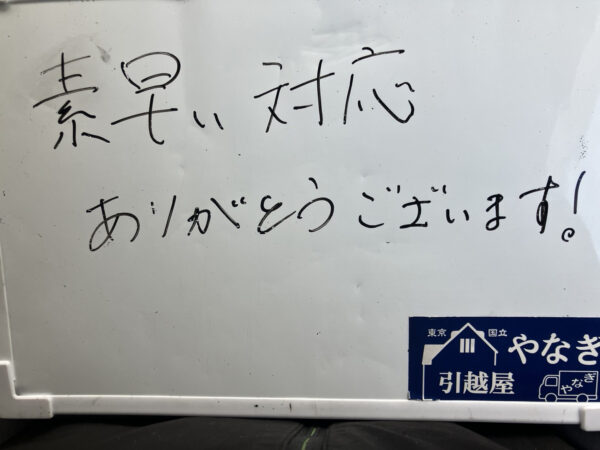 素早い対応
ありがとうございます!
東京 国立
やなぎ
引越屋
やなぎ